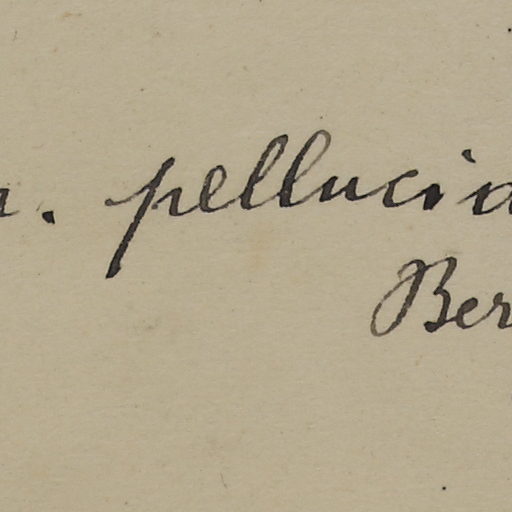 . pellucid
Ber